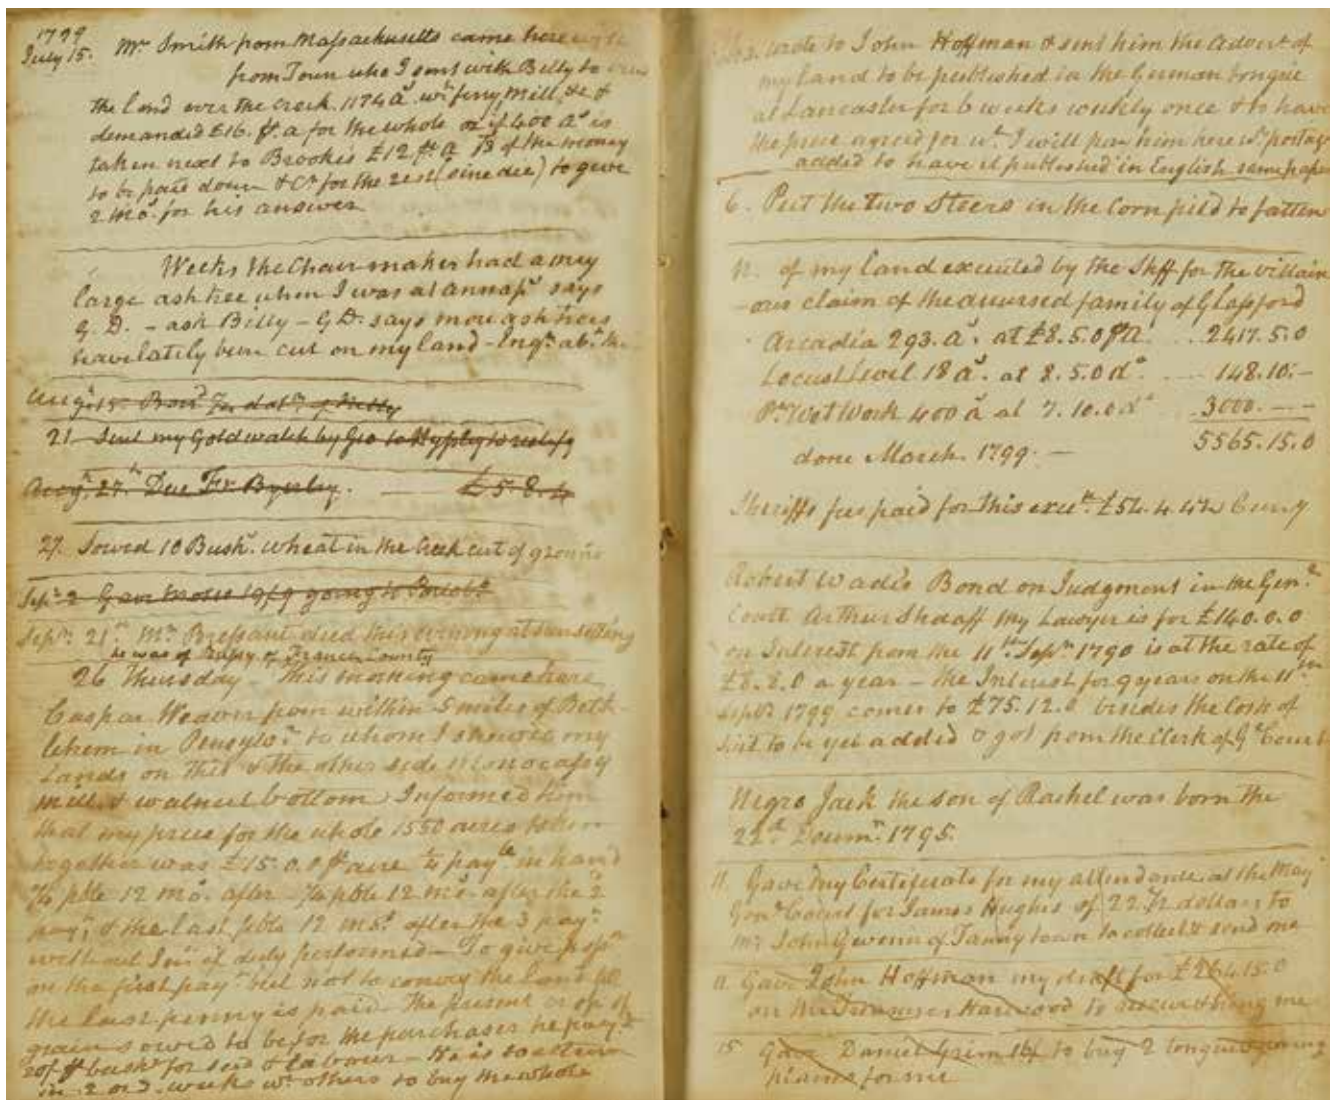 1799
July 15. Mr. Smith from Massachusetts came here
from Town who I sent with Billy to view
the land over the creek 1174 as. wt. ferry, mill, &c &
demanded £16. p. a for the whole or if 400 as. is
taken next to Brookes £12 pr. a 1/3 of the money
to be paid down & for the rest (sine die) to give
2 mos. for his answer
Weeks the Chairmaker had a very
large ash tree when I was at Annaps. says
G. D. - ask Billy - G D. says more ash trees
have lately been cut on my land - Enqr. abt. the
21 Sent my Gold watch by Geo to
Augt. 27th Due Fr. Byerley. £5.8.4
27. Sowed 10 Bushs. wheat in the Creek cut of ground
Sepr. 2 Gave Moses 19/9 going to
Sepr. 21st. Mr. Bressant died this evening at sunsetting
he was of of France County
26 Thursday - This morning came here
Caspar Weaver from within 5 miles of Beth-
lehem in to whom I shewed my
Lands on this & the other side Monocassy
mill, & walnut bottom Informed him
that my price for the whole 1550 acres taken
together was £15.0.0 pr acre 1/4 payble in hand
1/4 pble 12 mos. after - 1/4 pble 12 mos. after the 2
payt. & the last pble 12 mos. after the 3 payt.
without Int. if duly performed - To give possn
on the first payt. but not to convey the land till
the last penny is paid. The present crop of
grain sowed to be for the purchaser he payg
2of pr bushl for seed & labour - He is to return
in 2 or 3 weeks wt. others to buy the whole
wrote to John Hoffman & sent him the Advert of
my land to be published in the German tongue
at Lancaster for 6 weeks weekly once & to have
the price agreed for wh. I will pay him here wt. postage
added to have it published in English same paper
6. Put the two Steers in the Corn field to fatten
12. of my land executed by the Shff for the villain
-ous claim of the accursed family of Glassford
Arcadia 293. as. at £8.5.0 p a. 2417.5.0
Locust Level 18 as. at 8.5.0 do. 148.10.-
Pt. Wet Work 400 a at 7.10.0 do 3000.--
5565.15.0
done March. 1799.-
Sheriffs fees paid for this exect. £54.4.4½ Curry
Robert Wades Bond on Judgment in the Genl.
Court Arthur Shaaff my Lawyer is for £140.0.0
on Interest from the 11th Sepr. 1790 is at the rate of
£8.8.0 a year - the Interest for 9 years on the 11th
Sepr. 1799 comes to £75.12.0 besides the Costs of
suit to be yet added & got from the Clerk of Gl Court
Negro Jack the son of Rachel was born the
22d. Decemr. 1795.
11. Gave my Certificate for my attendance at the May
Genl. Court for James Hughes of 22½ dollars to
Mr. John Gwinn of Tanny town to collect & send me
11 Gave John Hoffman my draft for £264.15.0
on the Treasurer Harwood to receive & bring me
15 Gave Daniel Grim 16/ to buy 2 tongue
plains for me